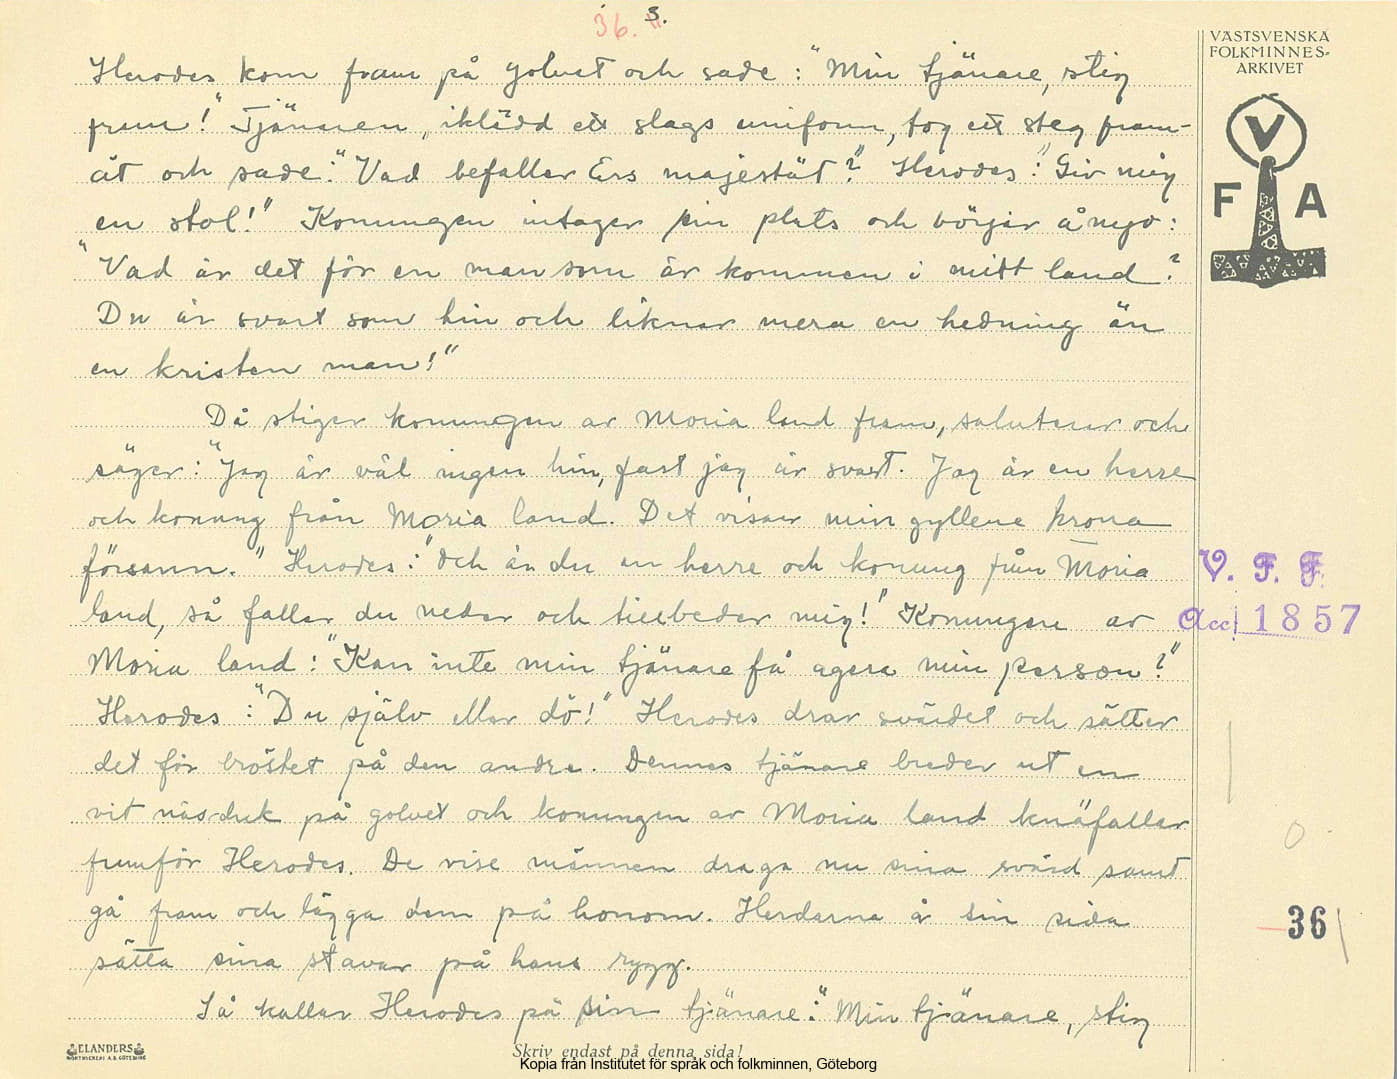 36. 3.
VÄSTSVENSKA
FOLKMINNES-
ARKIVET
V
F A
Herodes kom fram på golvet och sade: "Min tjänare, stig
fram!" Tjänaren, iklädd ett slags uniform, tog ett steg fram-
åt och sade: "Vad befaller Ers majestät?" Herodes: "Giv mig
en stol!" Konungen intager sin plats och börjar ånyo:
"Vad är det för en man som är kommen i mitt land?
Du är svart som hin och liknar mera en hedning än
en kristen man!"
Då stiger konungen av Moria land fram, saluterar och
säger: "Jag är väl ingen hin, fast jag är svart. Jag är en herre
och konung från Moria land. Det visar min gyllene krona
försann." Herodes: "Och är du en herre och konung från Moria
land, så faller du neder och tillbeder mig!" Konungen av
Moria land: "Kan inte min tjänare få agera min person?"
Herodes: "Du själv eller dö!" Herodes drar svärdet och sätter
det för bröstet på den andre. Dennes tjänare breder ut en
vit näsduk på golvet och konungen av Moria land knäfaller
framför Herodes. De vise männen draga nu sina svärd samt
gå fram och lägga dem på honom. Herdarna å sin sida
sätta sina stavar på hans rygg.
Så kallar Herodes på sin tjänare: "Min tjänare, stig
V. F. F.
Acc. 1857
36
ELANDERS
BOKTRYCKERI A.B. GÖTEBORG
Skriv endast på denna sida!
Kopia från Institutet för språk och folkminnen, Göteborg